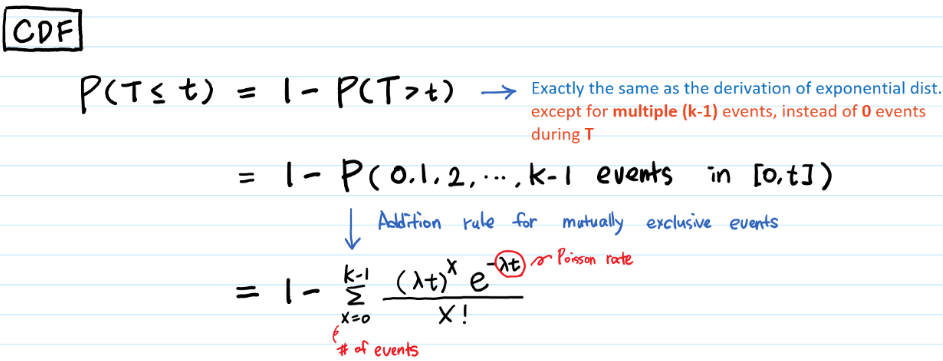 CDF
P(T ≤ t) = 1 - P(T > t) → Exactly the same as the derivation of exponential dist.
except for multiple (k-1) events, instead of 0 events
during T
= 1 - P( 0.1.2, ..., k-1 events in [0,t])
↓ Addition rule for mutually exclusive events
= 1 - Σ_{x=0}^{k-1} (λt)^x e^{-λt} / x! Poisson rate
# of events